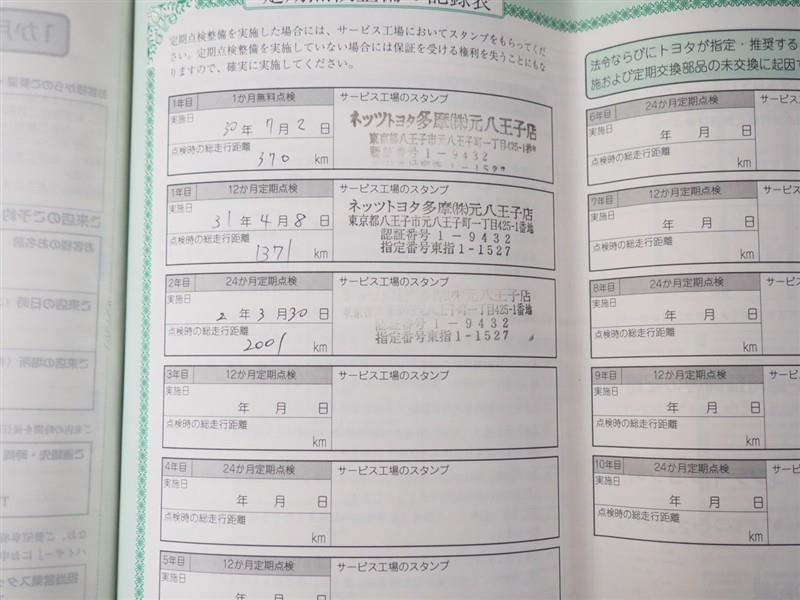 定期点検整備の記録表
定期点検整備を実施した場合には、サービス工場においてスタンプをもらってくだ
さい。定期点検整備を実施していない場合には保証を受ける権利を失うことにもな
りますので、確実に実施してください。
1年目 1か月無料点検 サービス工場のスタンプ
実施日
30年 7月 2日
点検時の総走行距離
370 km
ネッツトヨタ多摩(株)元八王子店
東京都八王子市元八王子町一丁目425-1番地
認証番号 1-9432
1年目 12か月定期点検 サービス工場のスタンプ
実施日
31年 4月 8日
点検時の総走行距離
1371 km
ネッツトヨタ多摩(株)元八王子店
東京都八王子市元八王子町一丁目425-1番地
認証番号 1-9432
指定番号東指1-1527
2年目 24か月定期点検 サービス工場のスタンプ
実施日
2年 3月 30日
点検時の総走行距離
2001 km
(株)元八王子店
元八王子町一丁目425-1番地
認証番号 1-9432
指定番号東指1-1527
3年目 12か月定期点検 サービス工場のスタンプ
実施日
年 月 日
点検時の総走行距離
km
4年目 24か月定期点検 サービス工場のスタンプ
実施日
年 月 日
点検時の総走行距離
km
5年目 12か月定期点検 サービス工場のスタンプ
実施日
年 月 日
法令ならびにトヨタが指定・推奨する
施および定期交換部品の未交換に起因す
6年目 24か月定期点検 サービ
実施日
年 月 日
点検時の総走行距離
km
7年目 12か月定期点検 サービス
実施日
年 月 日
点検時の総走行距離
km
8年目 24か月定期点検 サービ
実施日
年 月 日
点検時の総走行距離
km
9年目 12か月定期点検 サービ
実施日
年 月 日
点検時の総走行距離
km
10年目 24か月定期点検 サービ
実施日
年 月 日
点検時の総走行距離
km